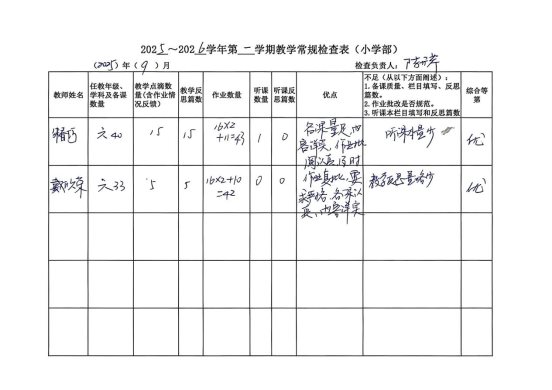 2025～2026学年第一学期教学常规检查表（小学部）
（2025）年（9）月 检查负责人：
教师姓名 任教年级、学科及备课数量 教学点滴数量（含作业情况反馈） 教学反思篇数 作业数量 听课数量 听课反思篇数 优点 不足（从以下方面阐述）：
1.备课质量、栏目填写、反思篇数。
2.作业批改是否规范。
3.听课本栏目填写和反思篇数 综合等第
40 15 15 16×2
+11=43 1 0 备课量足,内
容详实,作业批
阅认真,及时 听课量少 优
33 5 5 16×2+10
=42 0 0 教学反思量少 优